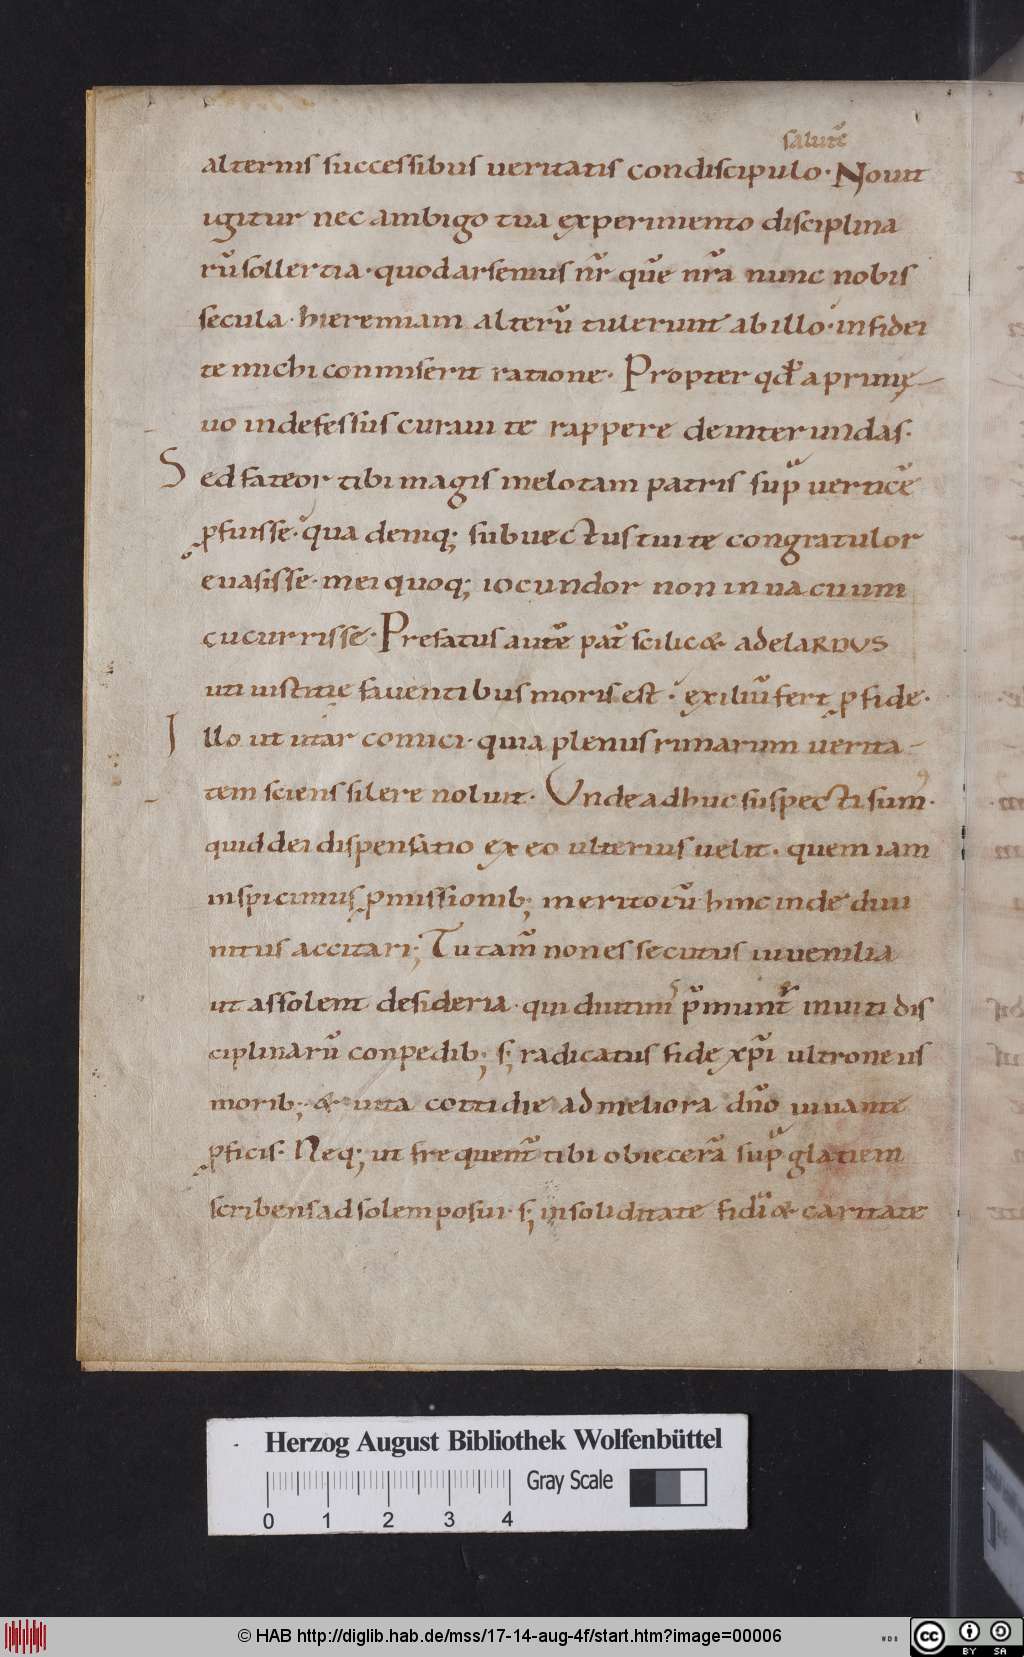 salutē
alternis successibus ueritatis condiscipulo · Nouit
igitur nec ambigo tua experimento disciplina
rū sollertia · quod arsenius nr̄ quē nr̄a nunc nobis
secula · hieremiam alterū tulerunt ab illo · in fidei
te michi conmiserit ratione · Propter qđ a primę
uo indefessus curaui te rappere de inter undas ·
Sed fateor tibi magis melotam patris sup̄ uerticē
ꝓfuisse · qua deniq; subuectus tui te congratulor
euasisse · mei quoq; iocundor non in uacuum
cucurrisse · Prefatus autē pat̄ scilic& adelardus
uti iustitie fauentibus moris est · exiliū fert ꝓ fide ·
Illo ut utar comici · quia plenus rimarum uerita
tem sciens silere noluit · Unde adhuc suspecti sumꝰ ·
quid dei dispensatio ex eo ulterius uelit · quem iam
inspicimus ꝓmissionib; meritorū hinc inde diui
nitus accitari; Tu tam̄ non es secutus iuuenilia
ut assolent desideria · qui diutini p̄munt̄ inuiti dis
ciplinarū conpedib; s; radicatus fide xp̄i ultroneus
morib; & uita cottidie ad meliora dn̄o iuuante
ꝓficis · Neq; ut frequent̄ tibi obiecerā sup̄ glatiem
scribens ad solem posui · s; in soliditate fidei & caritate
Herzog August Bibliothek Wolfenbüttel
Gray Scale
0 1 2 3 4
© HAB http://diglib.hab.de/mss/17-14-aug-4f/start.htm?image=00006
WDB
cc BY SA